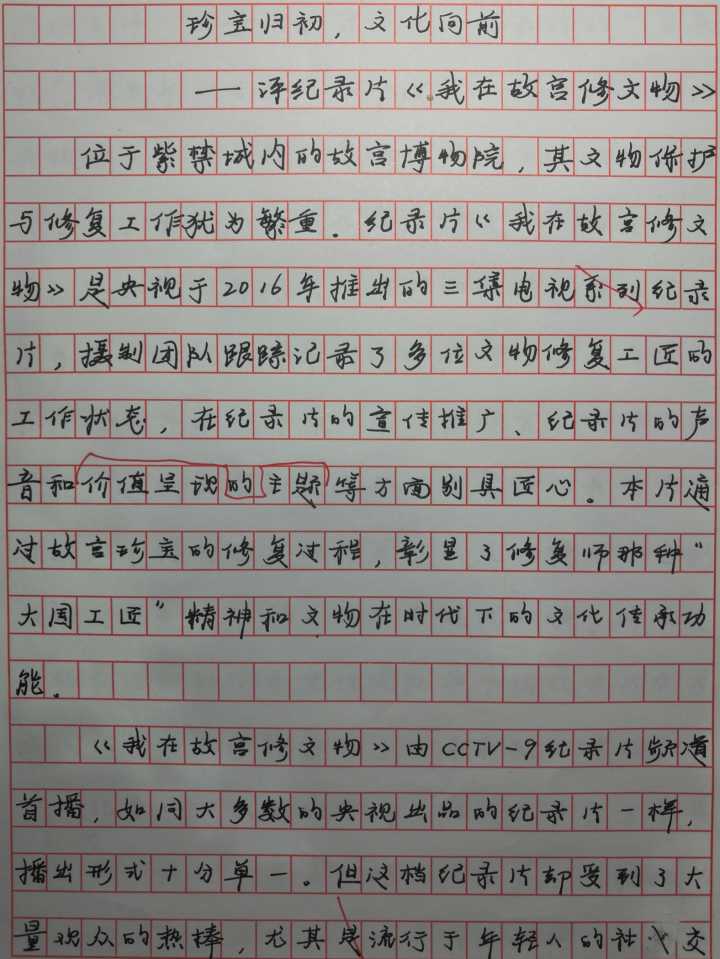 珍宝归初，文化向前
——评纪录片《我在故宫修文物》
位于紫禁城内的故宫博物院，其文物保护
与修复工作犹为繁重。纪录片《我在故宫修文
物》是央视于2016年推出的三集电视系列纪录
片，摄制团队跟踪记录了多位文物修复工匠的
工作状态，在纪录片的宣传推广、纪录片的声
音和价值呈现的主题等方面别具匠心。本片通
过故宫珍宝的修复过程，彰显了修复师那种“
大国工匠”精神和文物在时代下的文化传承功
能。
《我在故宫修文物》由CCTV-9纪录片频道
首播，如同大多数的央视出品的纪录片一样，
播出形式十分单一。但这档纪录片却受到了大
量观众的热棒，尤其是流行于年轻人的社交